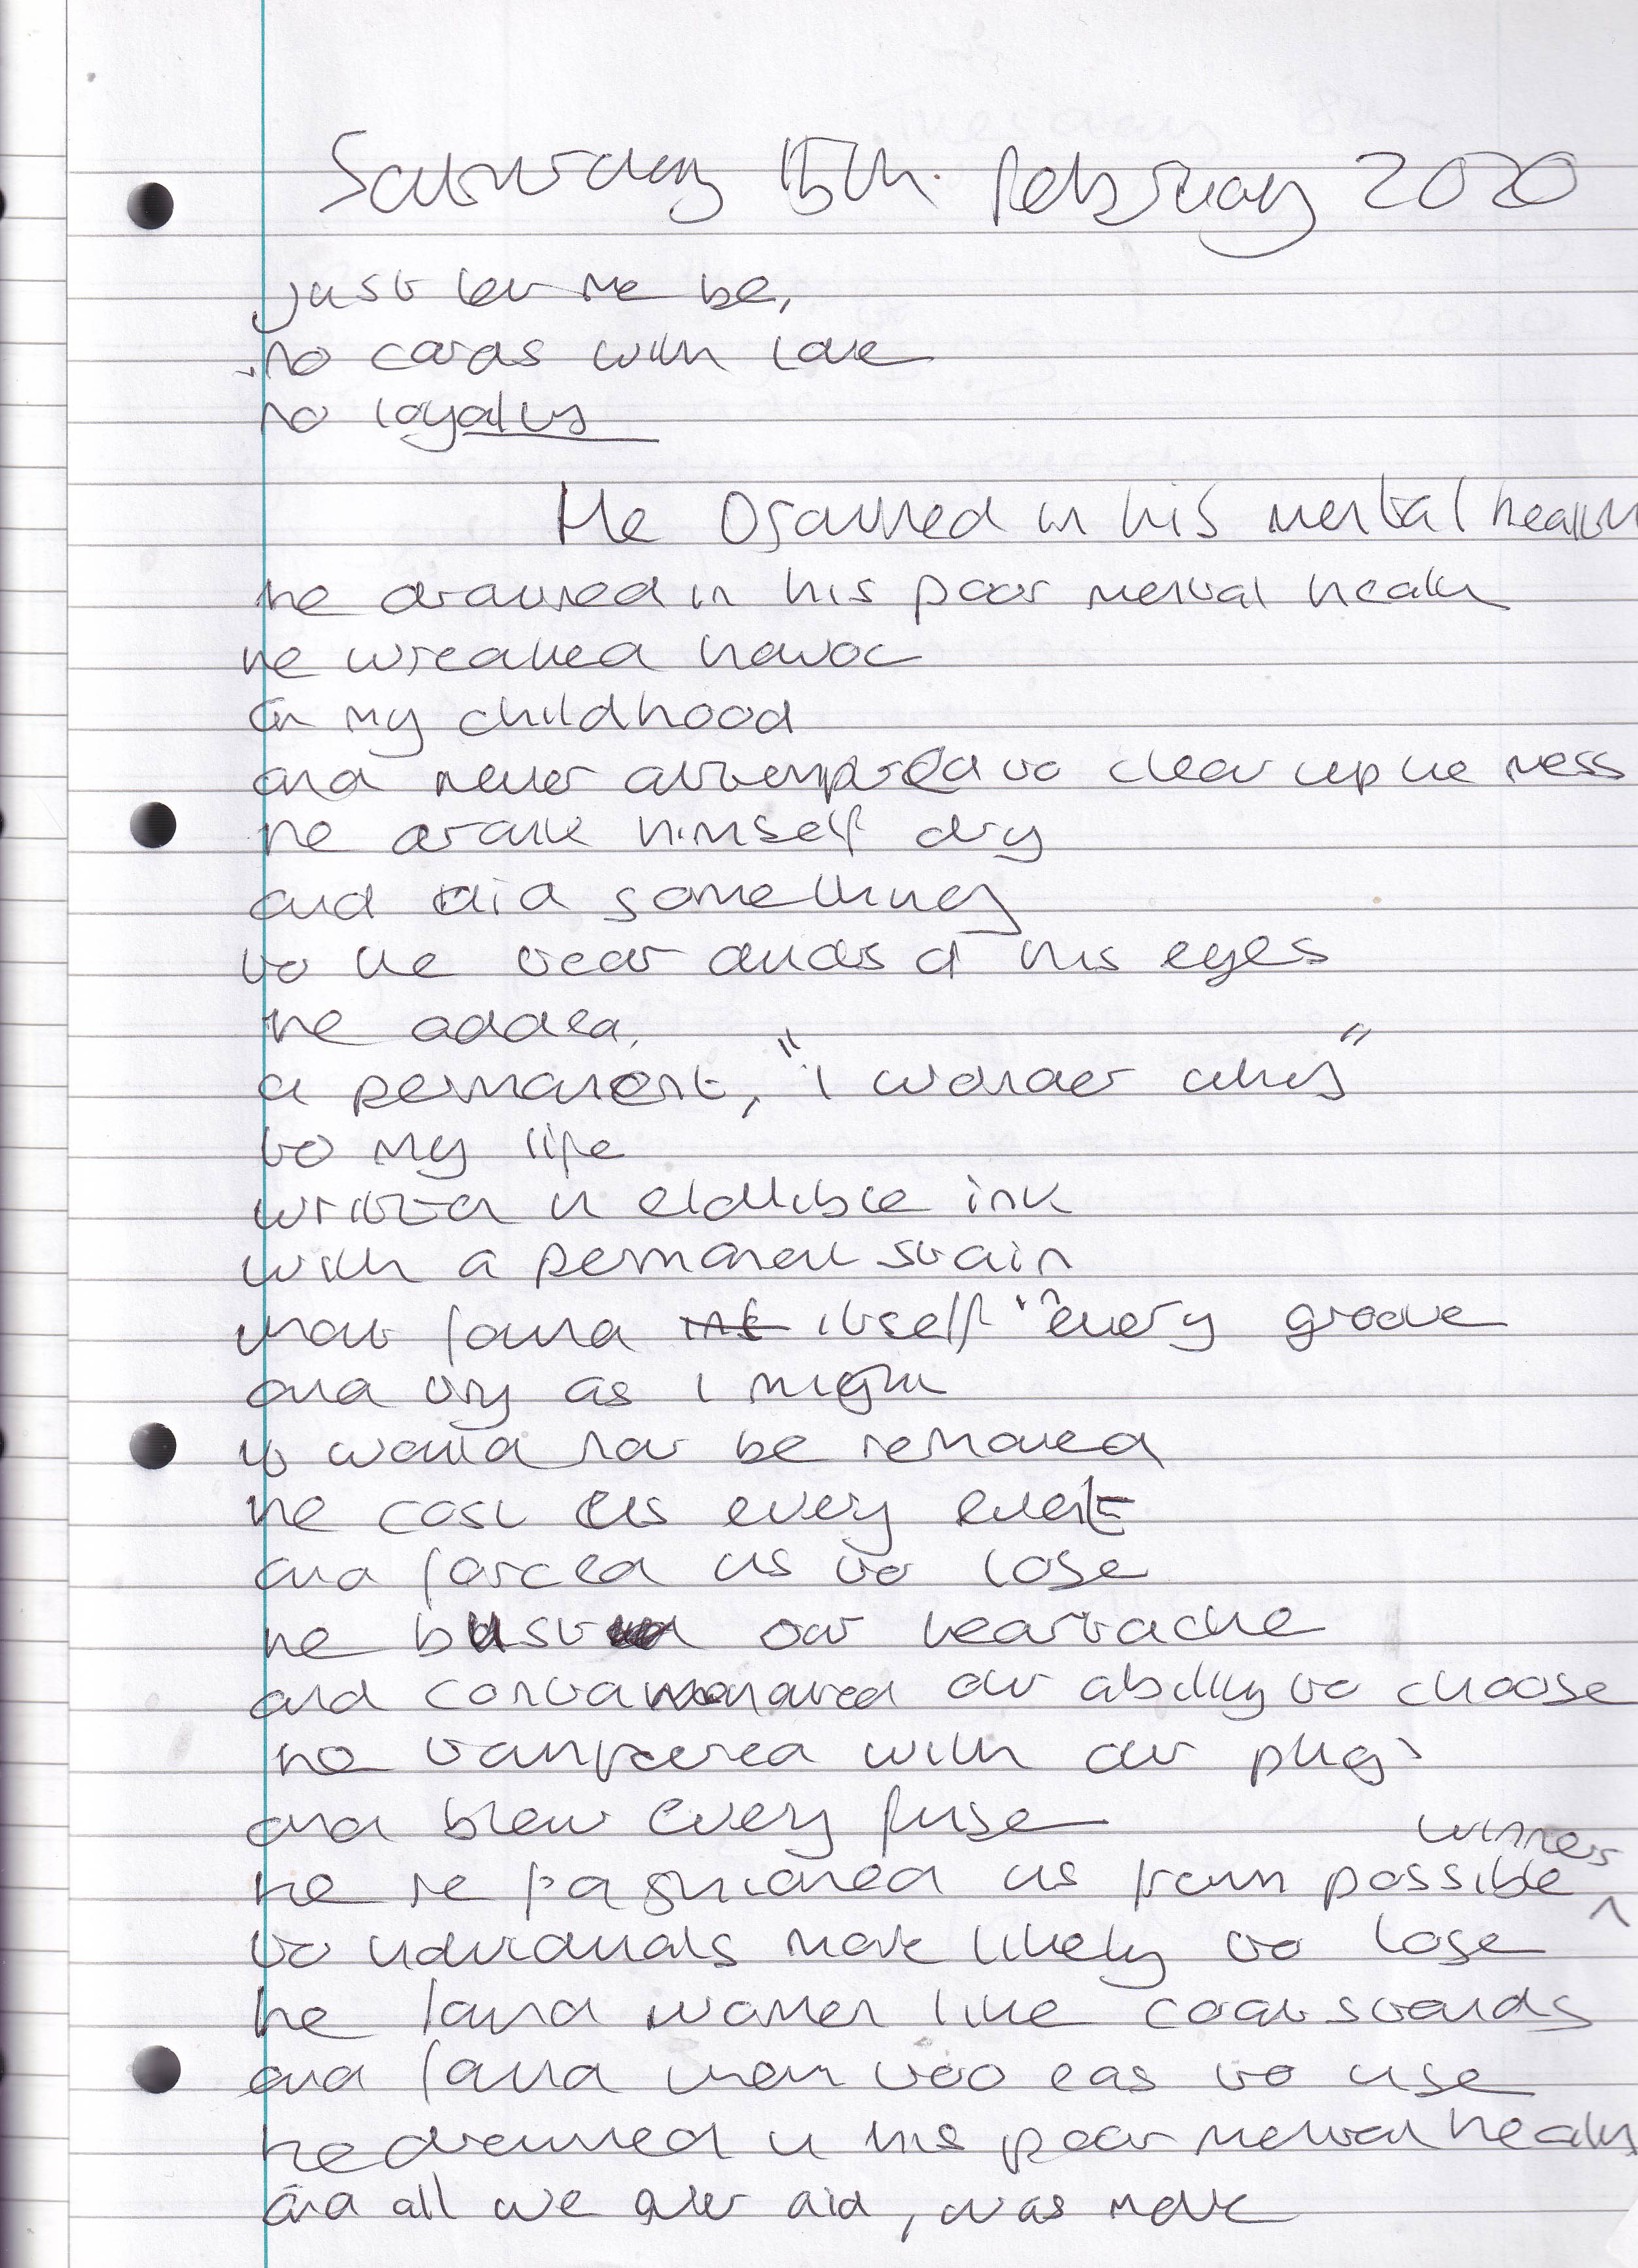 Saturday 15th. February 2020
just let me be,
no cards with love
no loyalty
He Drowned in his mental health
he drowned in his poor mental health
he wreaked havoc
in my childhood
and never attempted to clear up the mess
he drank himself dry
and did something
to the tear ducts of his eyes
he added,
a permanent, "i wonder why"
to my life
written in
ink
with a permanent stain
that found itself "every groove
and try as i might
it would not be removed
he cost us every event
and forced us to lose
he our heartache
and contaminated our ability to choose
he tampered with our plugs
and blew every fuse
he re fashioned us from possible winners
to individuals more likely to lose
he found women like coat stands
and found them too eas to use
he drowned in his poor mental health
and all we ever did, was move